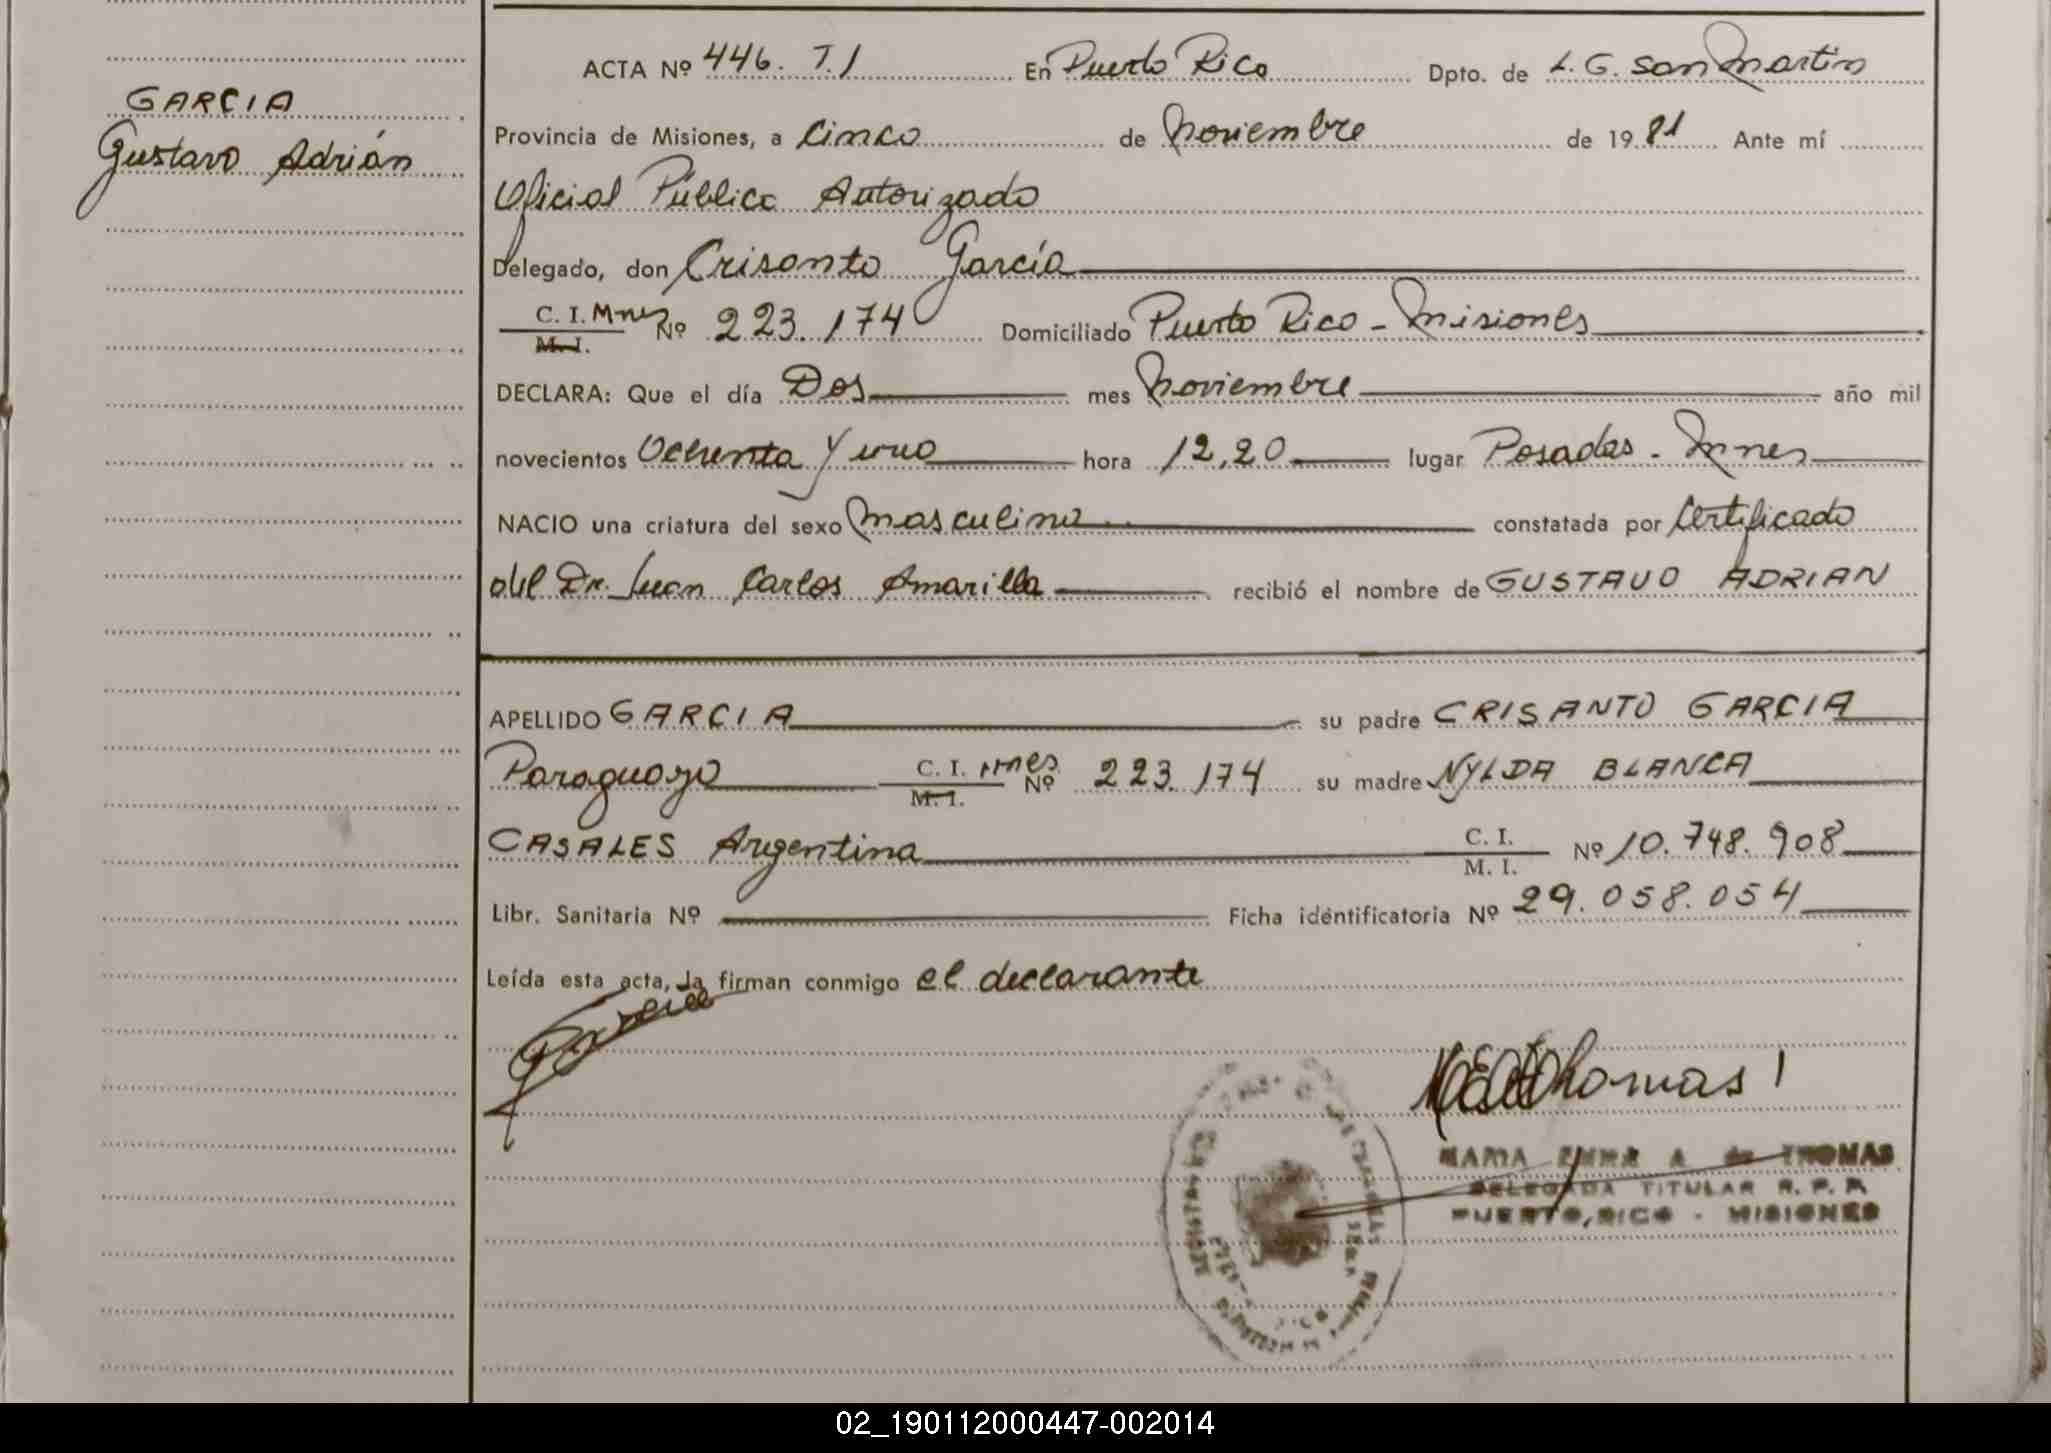 GARCIA
Gustavo Adrián
ACTA Nº 446. T.I En Puerto Rico Dpto. de L. G. San Martin
Provincia de Misiones, a Cinco de Noviembre de 1981 Ante mí
Oficial Público Autorizado
Delegado, don Crisanto García
C. I. Mnes Nº 223.174 Domiciliado Puerto Rico - Misiones
M. I.
DECLARA: Que el día Dos mes Noviembre año mil
novecientos Ochenta y uno hora 12,20 lugar Posadas - Mnes
NACIO una criatura del sexo Masculino constatada por Certificado
del Dr. Juan Carlos Amarilla recibió el nombre de GUSTAVO ADRIAN
APELLIDO GARCIA su padre CRISANTO GARCIA
Paraguayo C. I. Mnes Nº 223.174 su madre NYLDA BLANCA
M. I.
CASALES Argentina C. I. Nº 10.748.908
M. I.
Libr. Sanitaria Nº Ficha identificatoria Nº 29.058.054
Leída esta acta, la firman conmigo el declarante
Thomas
MARIA EMMA A de THOMAS
DELEGADA TITULAR R. P. P.
PUERTO RICO - MISIONES
02_190112000447-002014